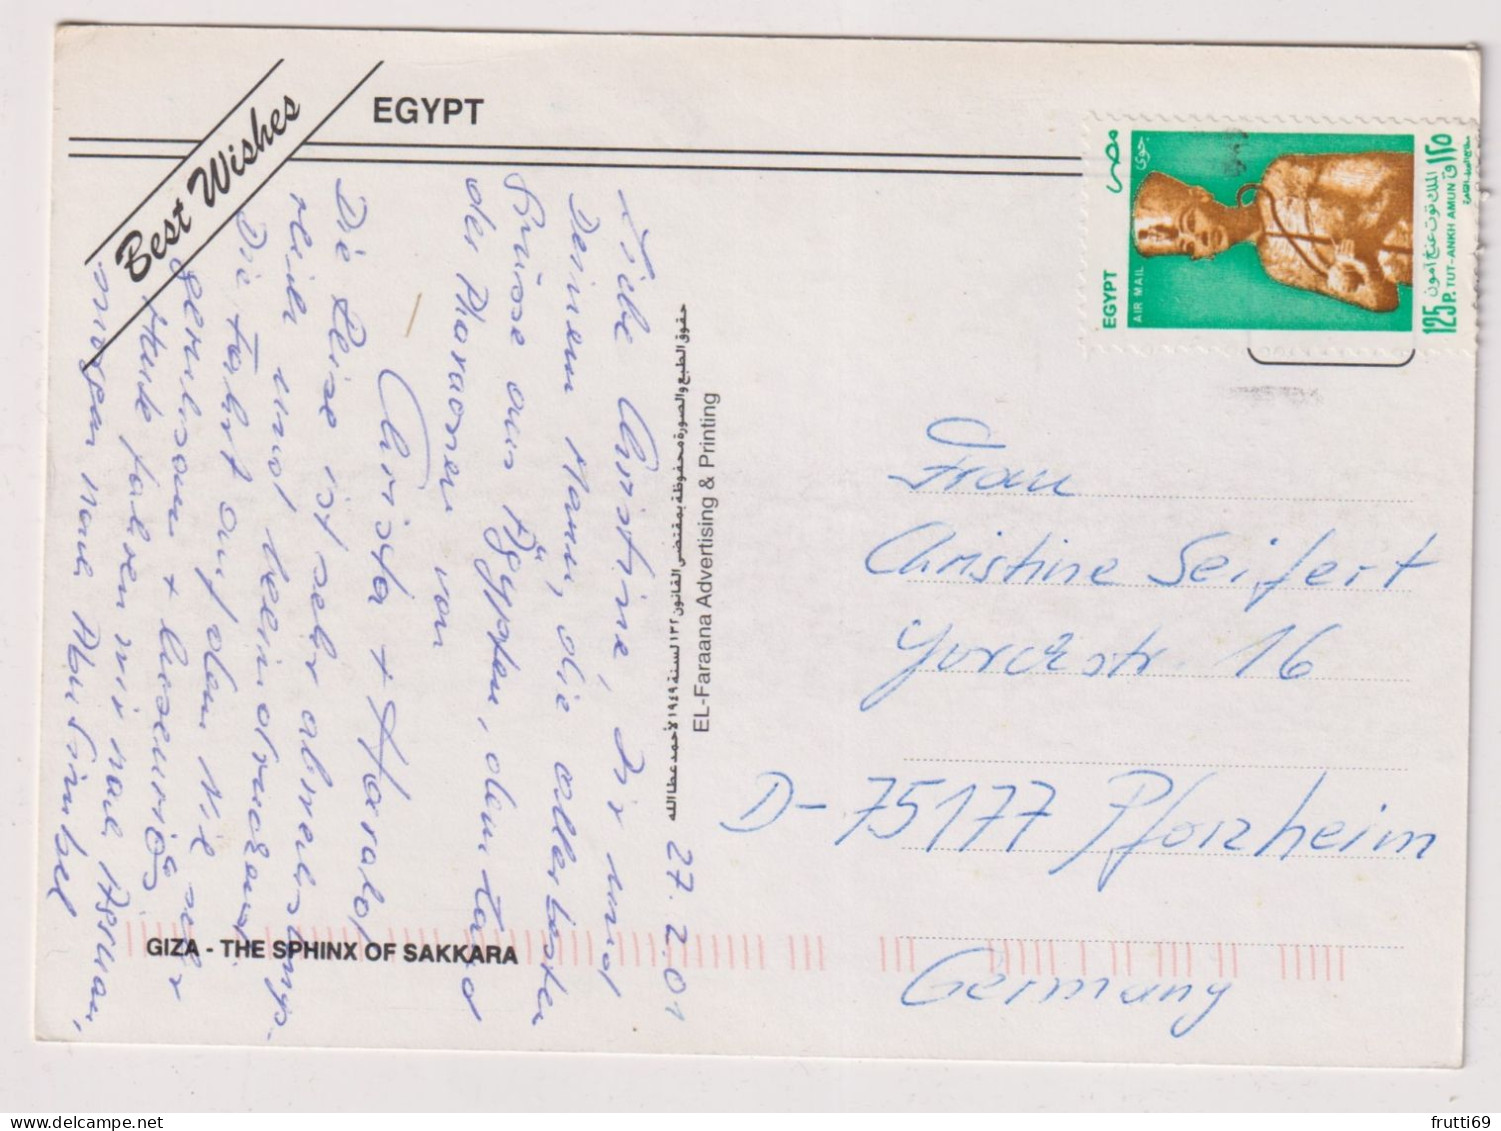 Best Wishes
EGYPT
مصر
جوى
EGYPT
AIR MAIL
الملك توت عنخ آمون
١٢٥ ق
125 P. TUT-ANKH AMUN
27.2.01
Liebe Christine, Dir und
Deinem Mann, die allerbesten
Grüsse aus Ägypten, dem Land
der Pharaonen von
Christa + Harald
Die Reise ist sehr abwechslungs-
reich und beeindruckend.
Die Fahrt auf dem Nil sehr
geruhsam +
Heute fahren wir nach Assuan,
morgen nach Abu Simbel
حقوق الطبع والصورة محفوظة بمقتضى القانون ١٣٢ لسنة ١٩٤٩ لأحمد عطا الله
EL-Faraana Advertising & Printing
Frau
Christine Seifert
Yorckstr. 16
D-75177 Pforzheim
Germany
GIZA - THE SPHINX OF SAKKARA
frutti69